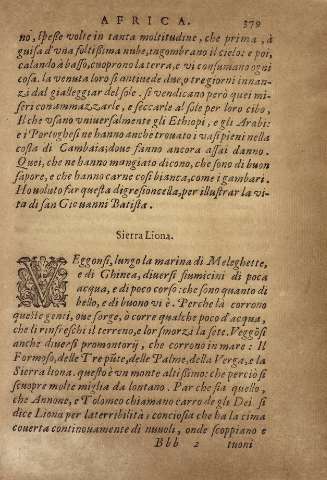 AFRICA. 379
no, spesse volte in tanta moltitudine, che prima, à
guisa d'vna foltissima nube, ingombrano il cielo: e poi,
calando à basso, cuoprono la terra, e vi consumano ogni
cosa. la venuta loro si antiuede due, o tre giorni innan-
zi dal gialleggiar del sole. si vendicano però quei mi-
seri con ammazzarle, e seccarle al sole per loro cibo,
Il che vsano vniuersalmente gli Ethiopi, e gli Arabi:
e i Portoghesi ne hanno anche trouato i vasi pieni nella
costa di Cambaia; doue fanno ancora assai danno.
Quei, che ne hanno mangiato dicono, che sono di buon
sapore, e che hanno carne così bianca, come i gambari.
Ho voluto far questa digressioncella, per illustrar la vi-
ta di san Giouanni Batista.
Sierra Liona.
VEggonsi, lungo la marina di Meleghette,
e di Ghinea, diuersi fiumicini di poca
acqua, e di poco corso: che sono quanto di
bello, e di buono vi è. Perche là corrono
quelle genti, oue sorge, ò corre qualche poco d'acqua,
che li rinfreschi il terreno, e lor smorzi la sete. Veggōsi
anche diuersi promontorij, che corrono in mare: Il
Formoso, delle Tre pūte, delle Palme, della Verga, e la
Sierra liona. questo è un monte altissimo: che perciò si
scuopre molte miglia da lontano. Par che sia quello,
che Annone, e Tolomeo chiamano carro de gli Dei. si
dice Liona per la terribilità: conciosia che ha la cima
couerta continouamente di nuuoli, onde scoppiano e
Bbb 2 tuoni